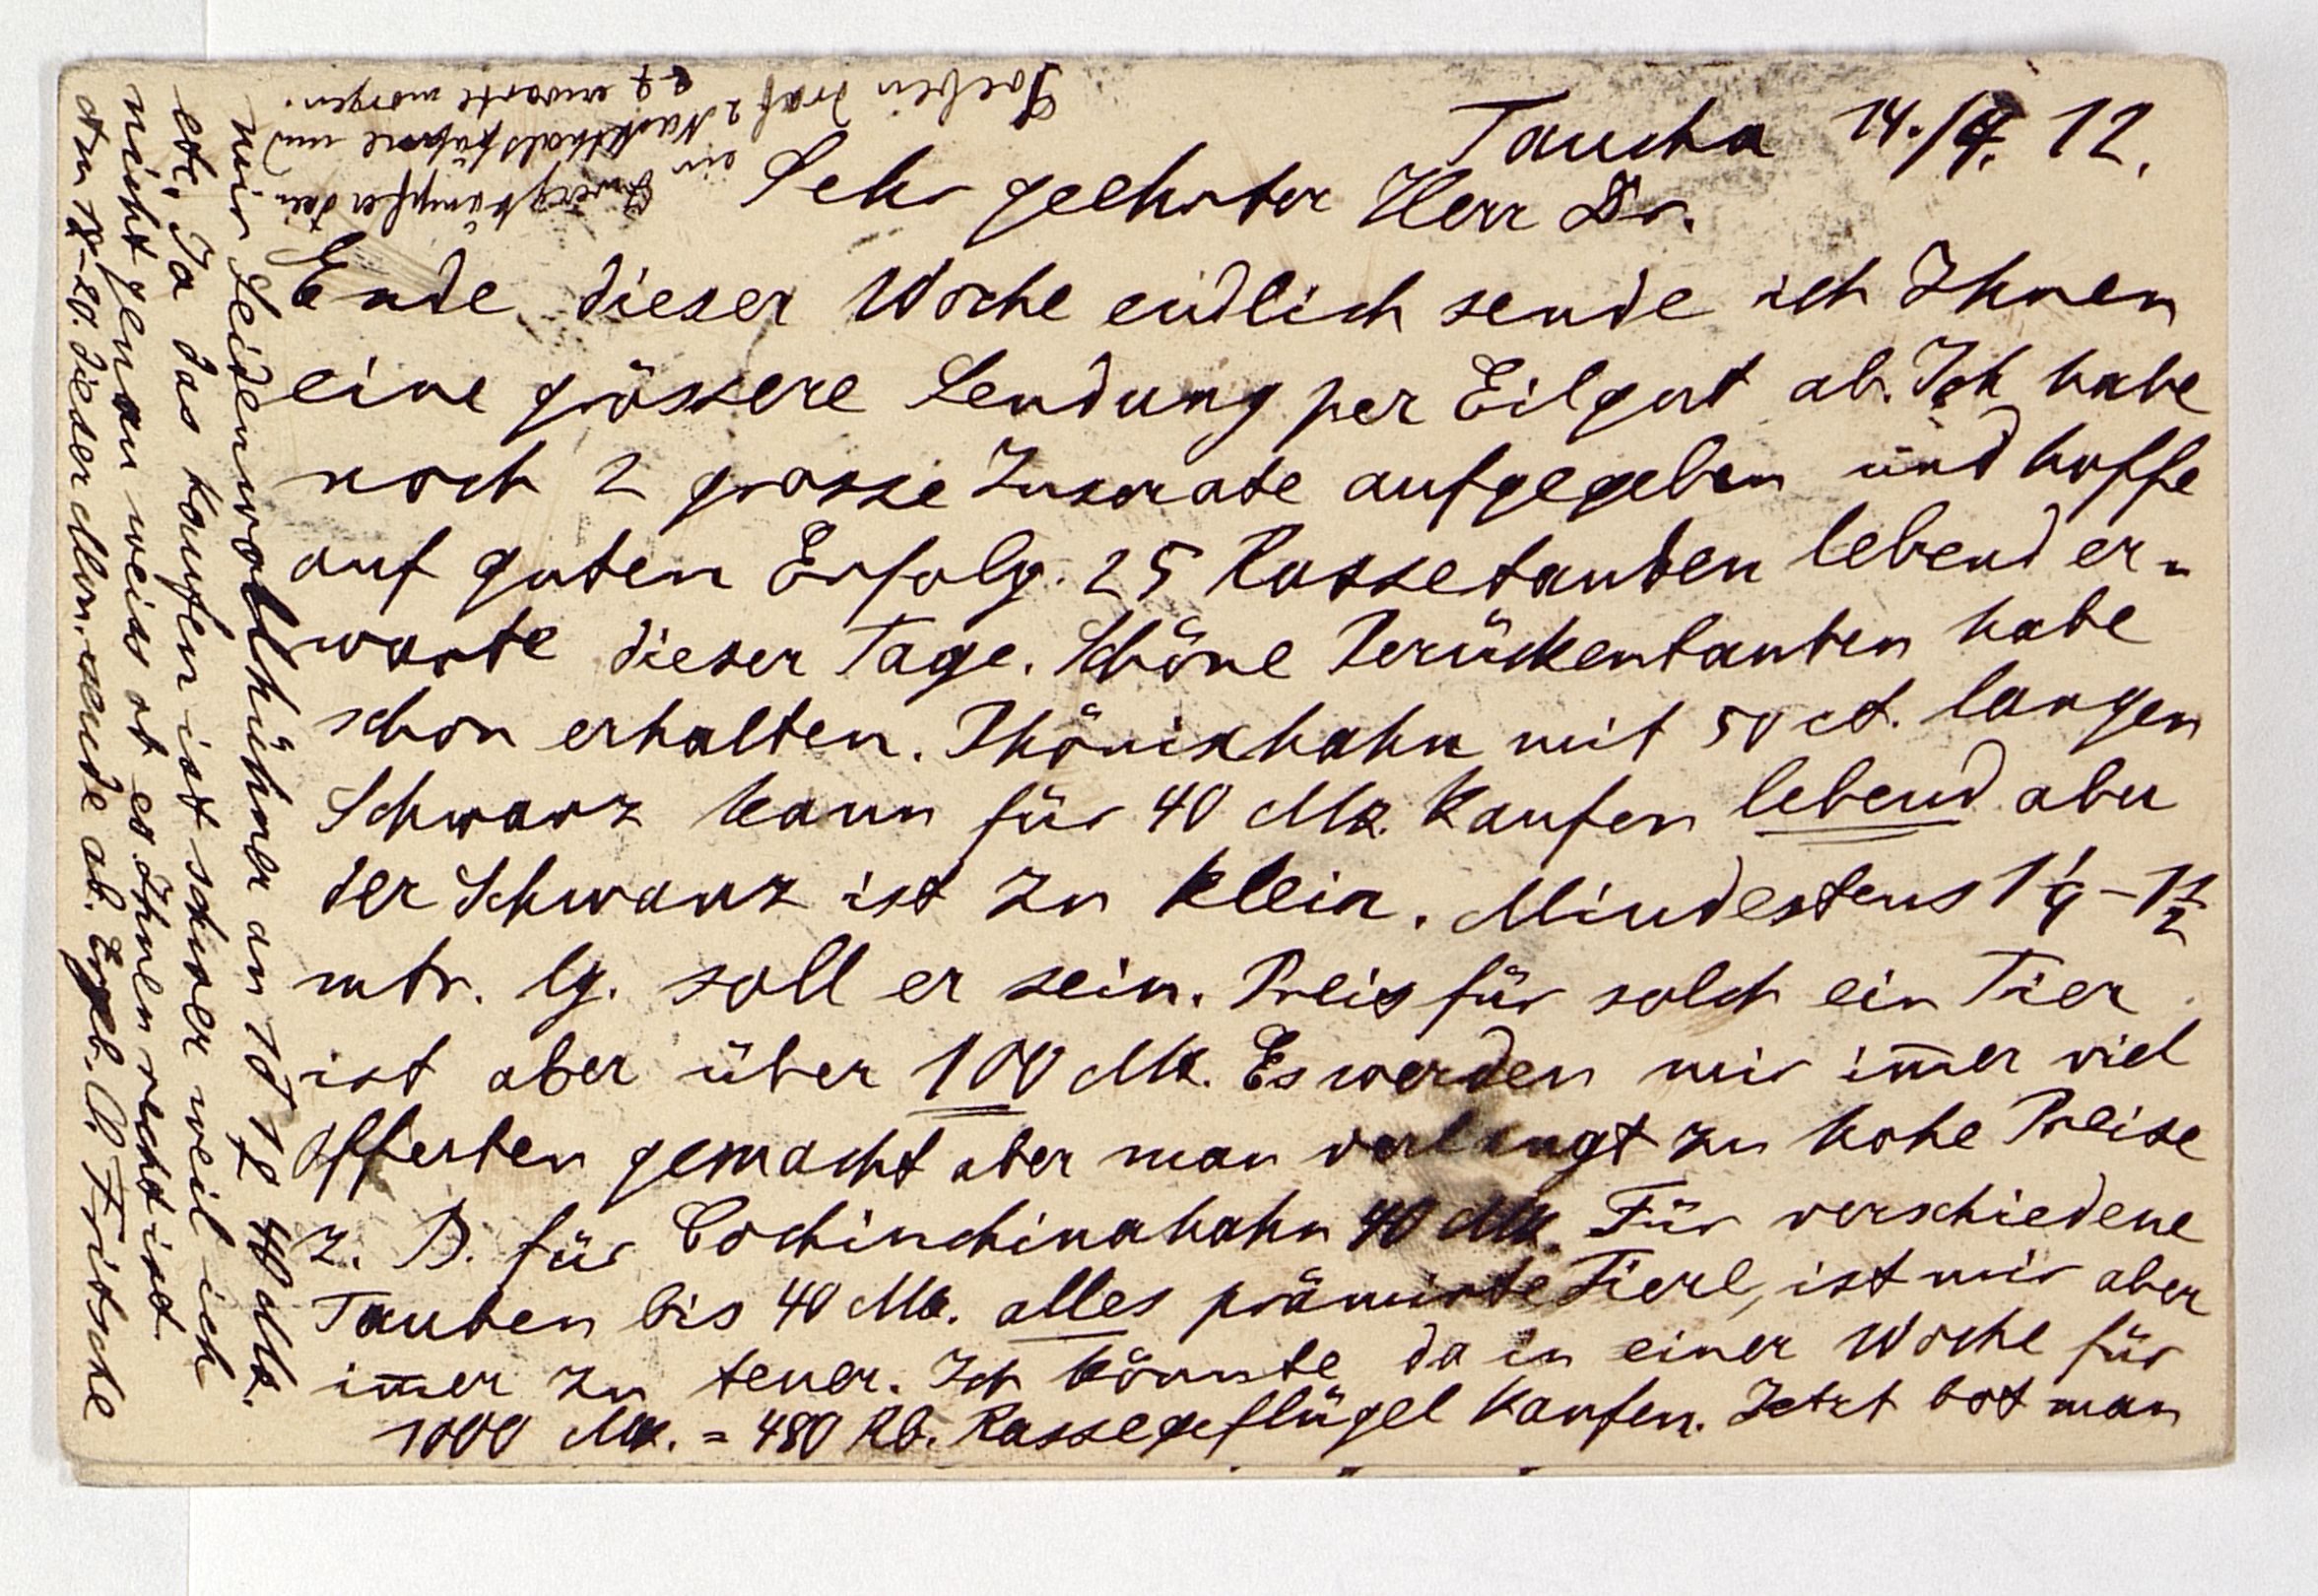 Taucha 14./4. 12.
Sehr geehrter Herr Dr.
Ende dieser Woche endlich sende ich Ihnen
eine grössere Sendung per Eilgut ab. Ich habe
noch 2 grosse Inserate aufgegeben und hoffe
auf guten Erfolg. 25 Rassetauben lebend er-
warte dieser Tage. Schöne Perückentauben habe
schon erhalten. Phönixhahn mit 50 ct. langen
Schwanz kann für 40 Mk. kaufen lebend aber
der Schwanz ist zu klein. Mindestens 1 1/4 - 1 1/2
mtr. lg. soll er sein. Preis für solch ein Tier
ist aber über 100 Mk. Es werden mir im̅er viel
Offerten gemacht aber man verlangt zu hohe Preise
z. B. für Cochinchinahahn 40 Mk. Für verschiedene
Tauben bis 40 Mk. alles prämirte Tiere, ist mir aber
im̅er zu teuer. Ich könnte da in einer Woche für
1000 Mk. = 480 Rb. Rassegeflügel kaufen. Jetzt bot man
mir Seidenwollhühner an 1 ♂ 1 ♀ 40 Mk.
etc. Ja das kaufen ist schwer weil ich
nicht genau weiss ob es Ihnen recht ist
Am 18-20. dieder Mon. sende ab. Ergb. A. Fritsche
Soeben traf 2
ein
Zwergkämpfer den
Nackthalshähne und
♀♀ erwarte morgen.